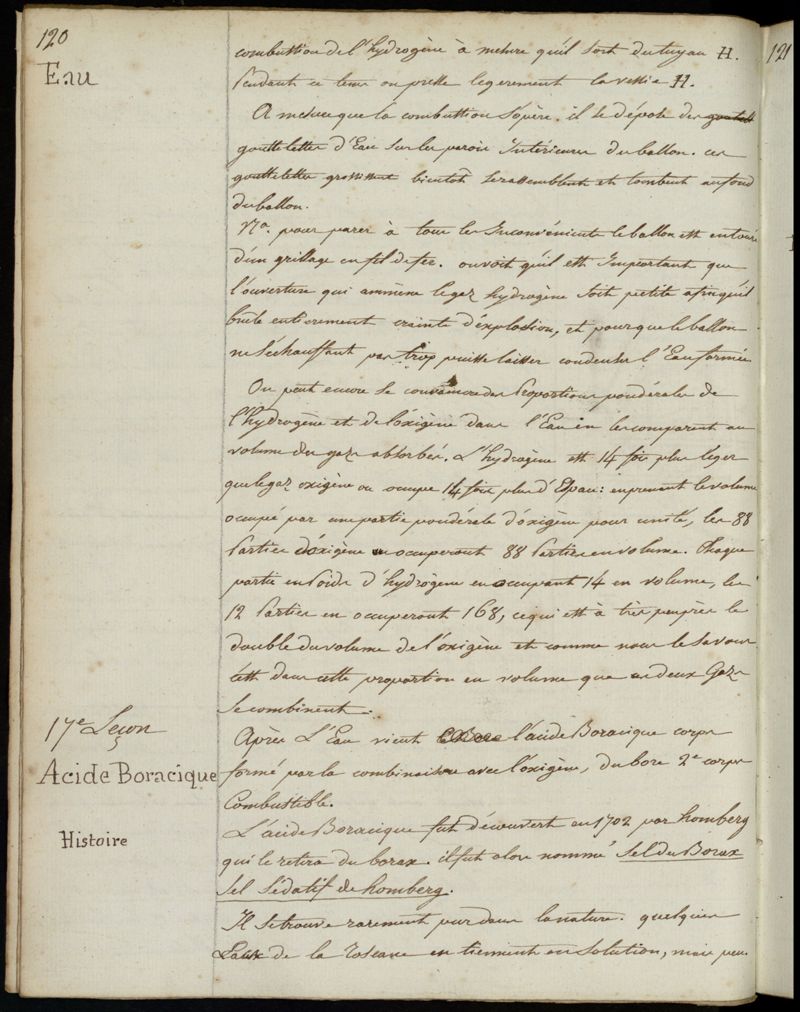 120
Eau
combustion de l'hydrogène à mesure qu'il sort du tuyau H.
Pendant ce tems on presse legerement la vessie H.
A mesure que la combustion s'opère. il se dépose des
gouttelettes d'Eau sur les parois Intérieures du ballon. ces
gouttelettes grossissent bientôt se rassemblent et tombent au fond
du ballon.
Nª. pour parer à tous les Inconvénients le ballon est entouré
d'un grillage en fil de fer. on voit qu'il est Important que
l'ouverture qui ammène le gaz hydrogène soit petite afin qu'il
brule entierement crainte d'éxplosion, et pour que le ballon
ne s'échauffant pas trop puisse laisser condenser l'Eau formée
On peut encore se convaincre des Proportions pondérales de
l'hydrogène et de l'óxigène dans l'Eau en les comparent au
volume des gazs absorbés. L'hydrogène est 14 fois plus leger
que le gaz oxigène ou occupe 14 fois plus d'Espace: en prenant le volume
occupé par une partie pondérale d'óxigène pour unité, les 88
Parties d'óxigène occuperont 88 Parties en volume. Chaque
partie en Poids d'hydrogène en occupant 14 en volume, les
12 Parties en occuperont 168, ce qui est à très peu près le
double du volume de l'óxigène et comme nous le savons
c'est dans cette proportion en volume que ces deux Gazs
se combinent.
17e Leçon
Après L'Eau vient l'acide Boracique corps
Acide Boracique
formé par la combinaison avec l'óxigène, du bore 2e corps
Combustible.
Histoire
L'acide Boracique fut découvert en 1702 par homberg
qui le retira du borax. il fut alors nommé Sel du Borax
Sel Sédatif de homberg.
Il se trouve rarement pur dans la nature. quelques
Eaux de la Toscane en tiennent en solution, mais peu.
121